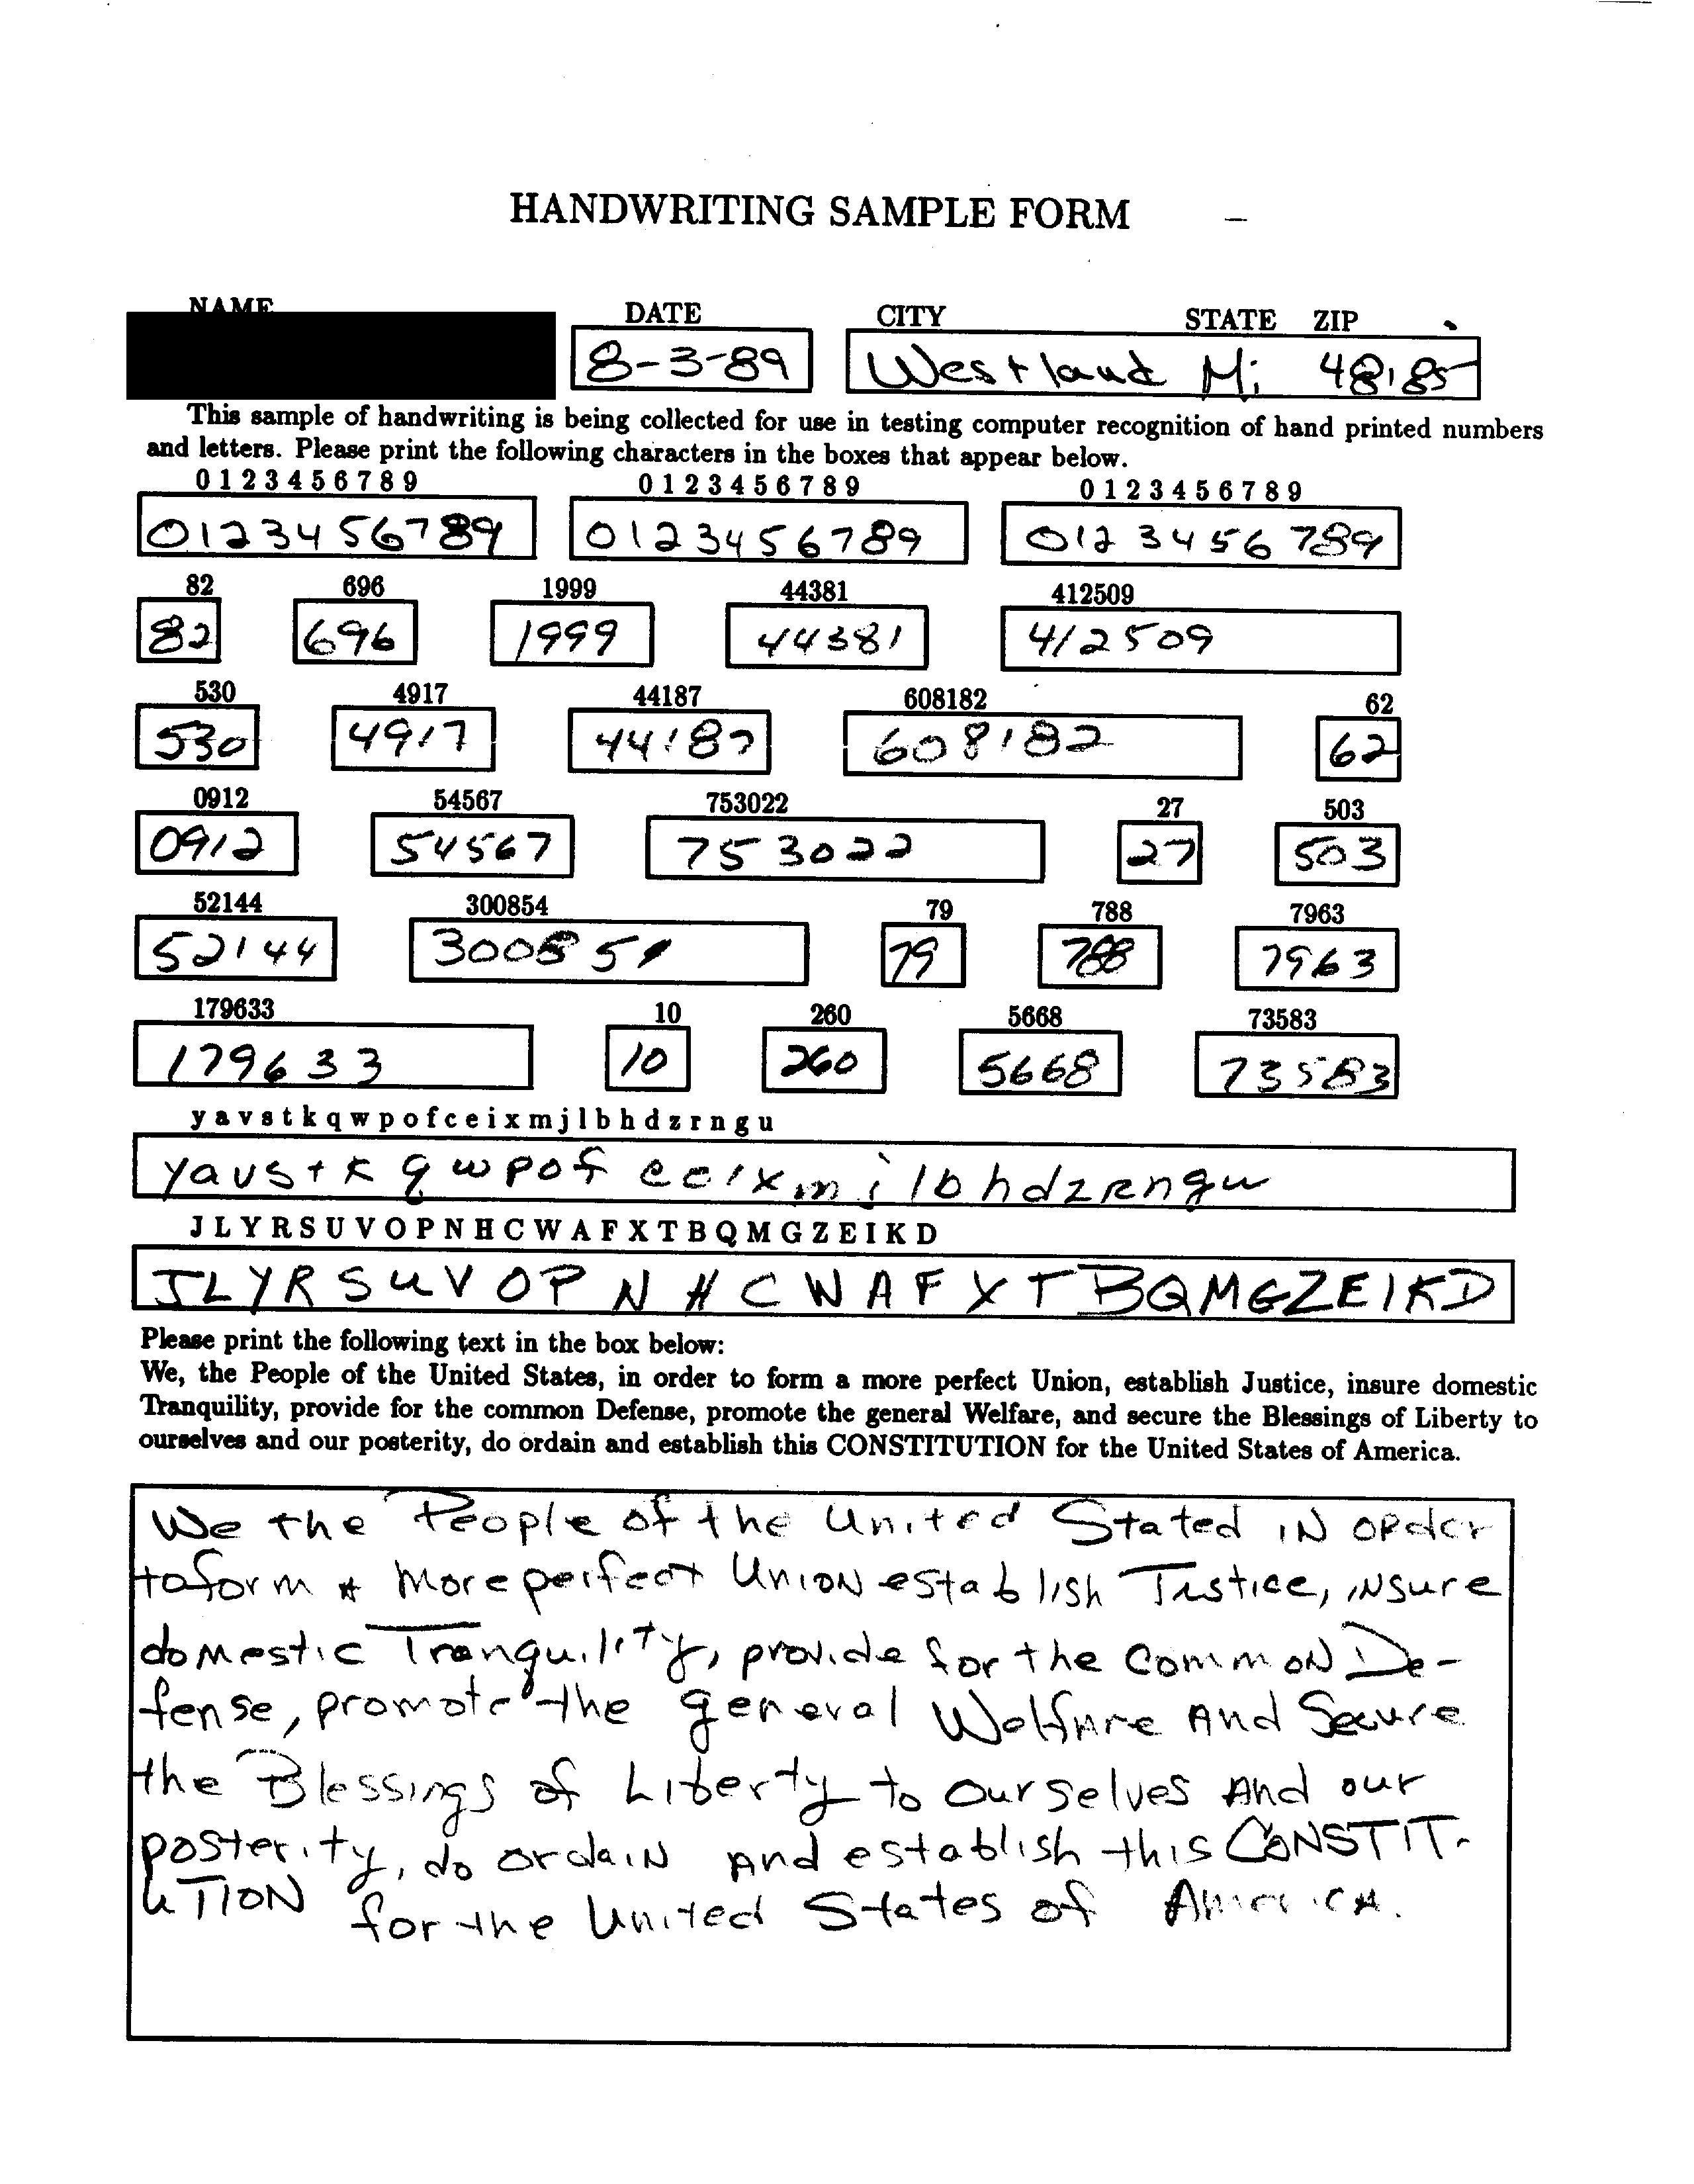 HANDWRITING SAMPLE FORM
NAME DATE CITY STATE ZIP
8-3-89 Westland Mi 48185
This sample of handwriting is being collected for use in testing computer recognition of hand printed numbers
and letters. Please print the following characters in the boxes that appear below.
0 1 2 3 4 5 6 7 8 9 0 1 2 3 4 5 6 7 8 9 0 1 2 3 4 5 6 7 8 9
0123456789 0123456789 0123456789
82 696 1999 44381 412509
82 696 1999 44381 412509
530 4917 44187 608182 62
530 4917 44187 608182 62
0912 54567 753022 27 503
0912 54567 753022 27 503
52144 300854 79 788 7963
52144 300854 79 788 7963
179633 10 260 5668 73583
179633 10 260 5668 73583
y a v s t k q w p o f c e i x m j l b h d z r n g u
yavstk qwpof ceixmjlbhdzRngu
J L Y R S U V O P N H C W A F X T B Q M G Z E I K D
JLYRSUVOPNHCWAFXTBQMGZEIKD
Please print the following text in the box below:
We, the People of the United States, in order to form a more perfect Union, establish Justice, insure domestic
Tranquility, provide for the common Defense, promote the general Welfare, and secure the Blessings of Liberty to
ourselves and our posterity, do ordain and establish this CONSTITUTION for the United States of America.
We the People of the United Stated iN oRder
to form A More perfect UnioN establish Justice, iNsure
doMestic Tranquility, provide for the CommoN De-
fense, promote the general Welfare And Secure
the Blessings of Liberty to Ourselves And our
posterity, do ordaiN And establish this CONSTIT-
UTION for the United States of America.